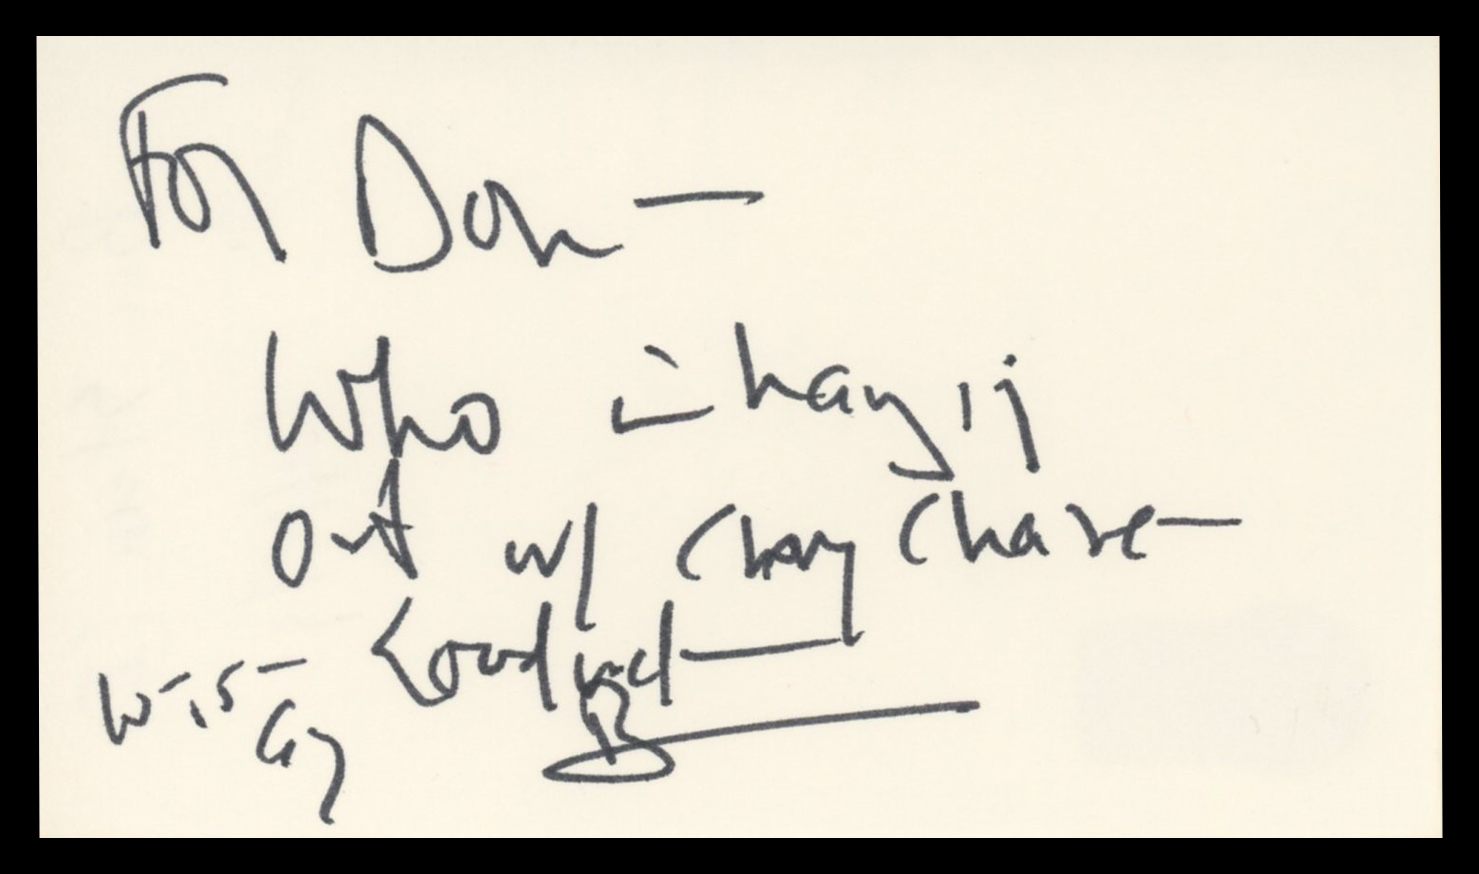 For Don —
Who is hanging
out w/ Chevy Chase —
Good luck —